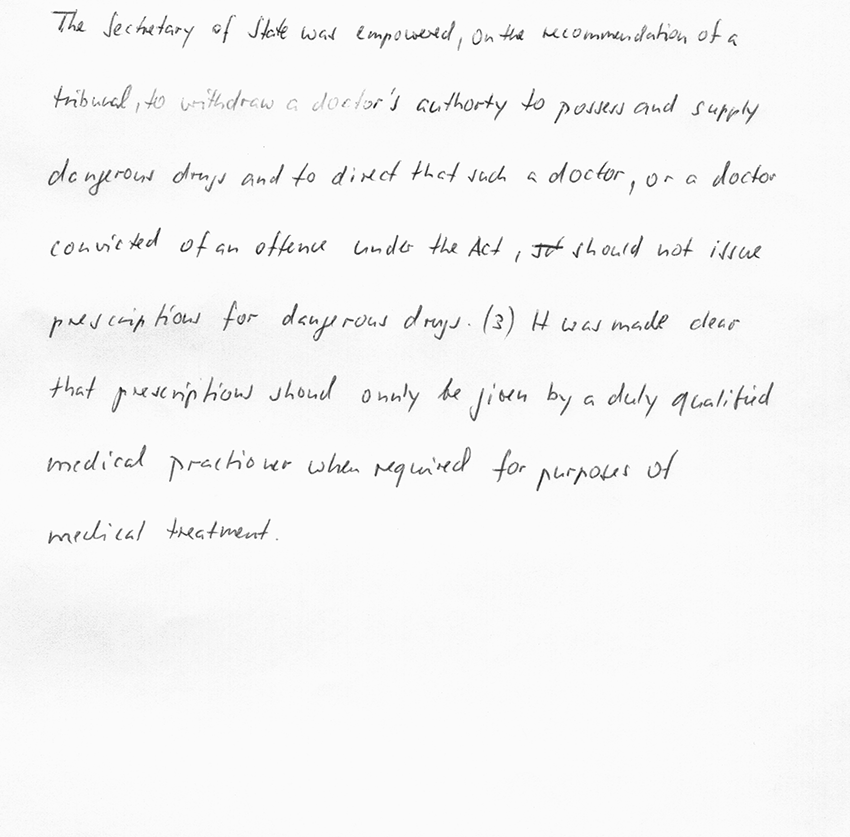 The Secretary of State was empowered, on the recommendation of a
tribunal, to withdraw a doctor's authorty to possess and supply
dangerous drugs and to direct that such a doctor, or a doctor
convicted of an offence under the Act, should not issue
prescriptions for dangerous drugs. (3) It was made clear
that prescriptions shoud onnly be given by a duly qualified
medical practioner when required for purposes of
medical treatment.